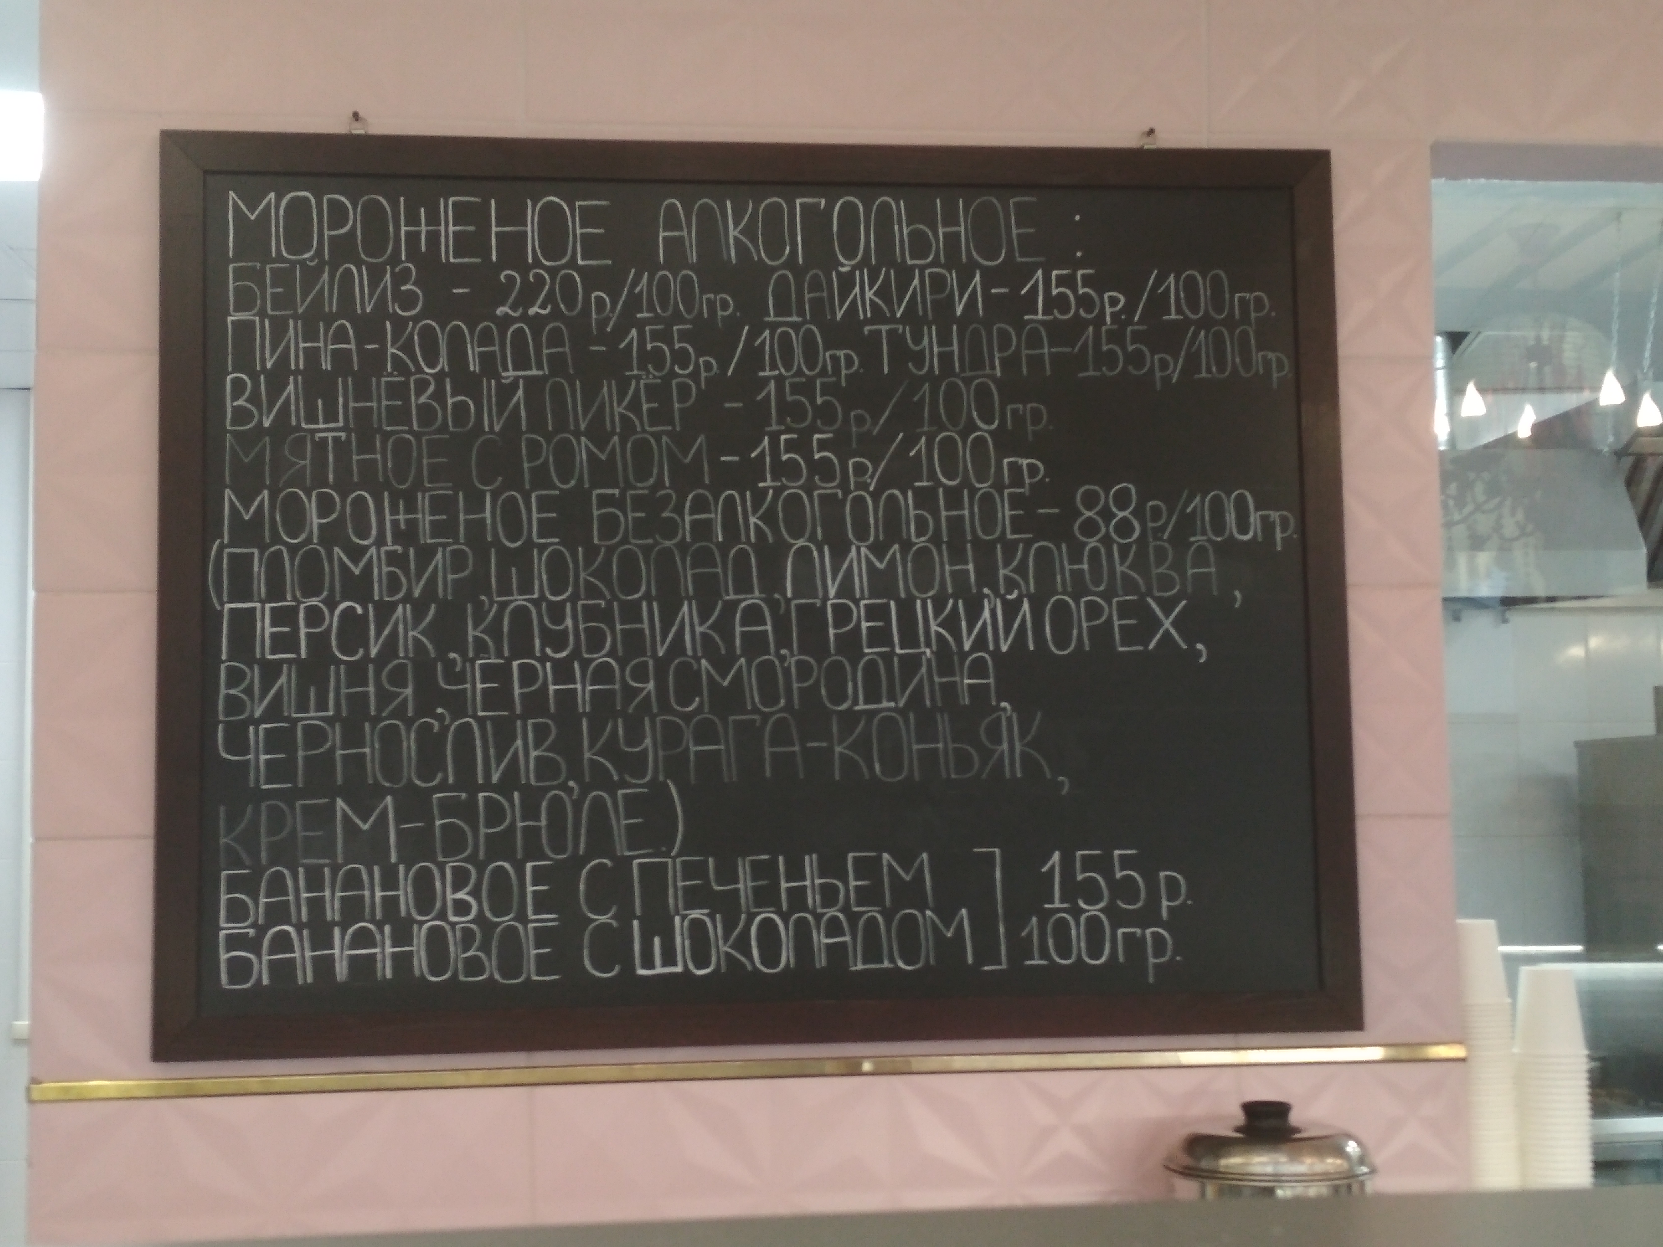 МОРОЖЕНОЕ АЛКОГОЛЬНОЕ :
БЕЙЛИЗ - 220р/100гр. ДАЙКИРИ-155р./100гр.
ПИНА-КОЛАДА -155р/100гр. ТУНДРА-155р/100гр.
ВИШНЁВЫЙ ЛИКЁР - 155р/100гр.
МЯТНОЕ С РОМОМ -155р/100гр.
МОРОЖЕНОЕ БЕЗАЛКОГОЛЬНОЕ- 88р/100гр.
(ПЛОМБИР, ШОКОЛАД, ЛИМОН, КЛЮКВА,
ПЕРСИК, КЛУБНИКА, ГРЕЦКИЙ ОРЕХ,
ВИШНЯ, ЧЕРНАЯ СМОРОДИНА,
ЧЕРНОСЛИВ, КУРАГА-КОНЬЯК,
КРЕМ-БРЮЛЕ.)
БАНАНОВОЕ С ПЕЧЕНЬЕМ ] 155р.
БАНАНОВОЕ С ШОКОЛАДОМ ] 100гр.